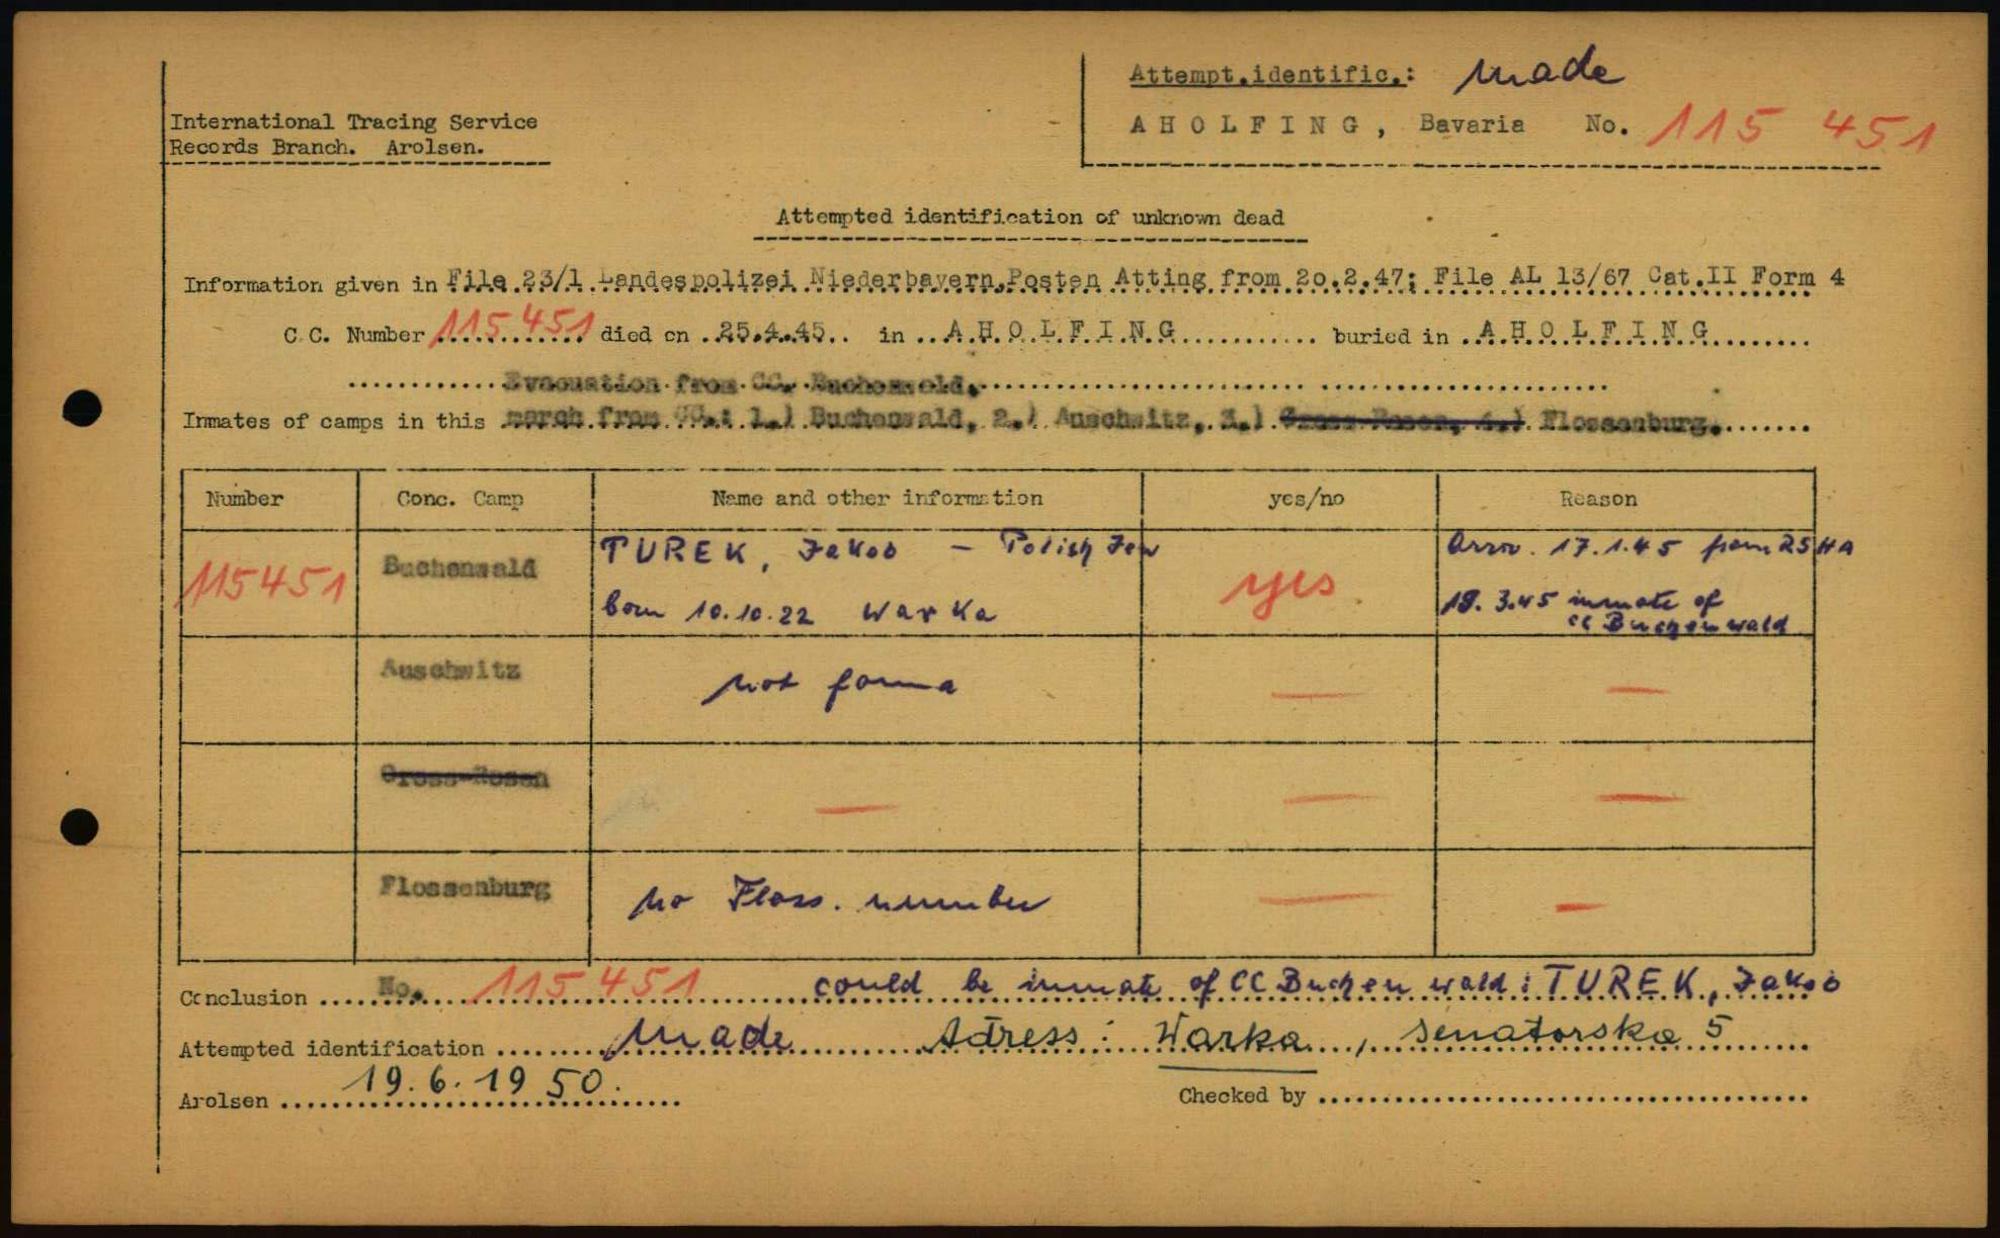 Attempt.identific.: made
International Tracing Service
Records Branch. Arolsen.
AHOLFING, Bavaria No. 115 451
Attempted identification of unknown dead
Information given in File 23/1 Landespolizei Niederbayern,Posten Atting from 2o.2.47; File AL 13/67 Cat.II Form 4
C.C. Number 115 451 died on 25.4.45 in AHOLFING buried in AHOLFING
Evacuation from CC. Buchenwald.
Inmates of camps in this march from CC.: 1.) Buchenwald, 2.) Auschwitz, 3.) Gross Rosen, 4.) Flossenburg.
Number Conc. Camp Name and other information yes/no Reason
115451 Buchenwald TUREK, Jakob – Polish Jew yes Arrv. 17.1.45 from RSHA
born 10.10.22 Warka 19.3.45 inmate of
CC Buchenwald
Auschwitz not
Gross-Rosen
Flossenburg no Floss. number
Conclusion No. 115 451 could be inmate of CC Buchenwald: TUREK, Jakob
Attempted identification made Adress: Warka, Senatorska 5
Arolsen 19.6.1950. Checked by